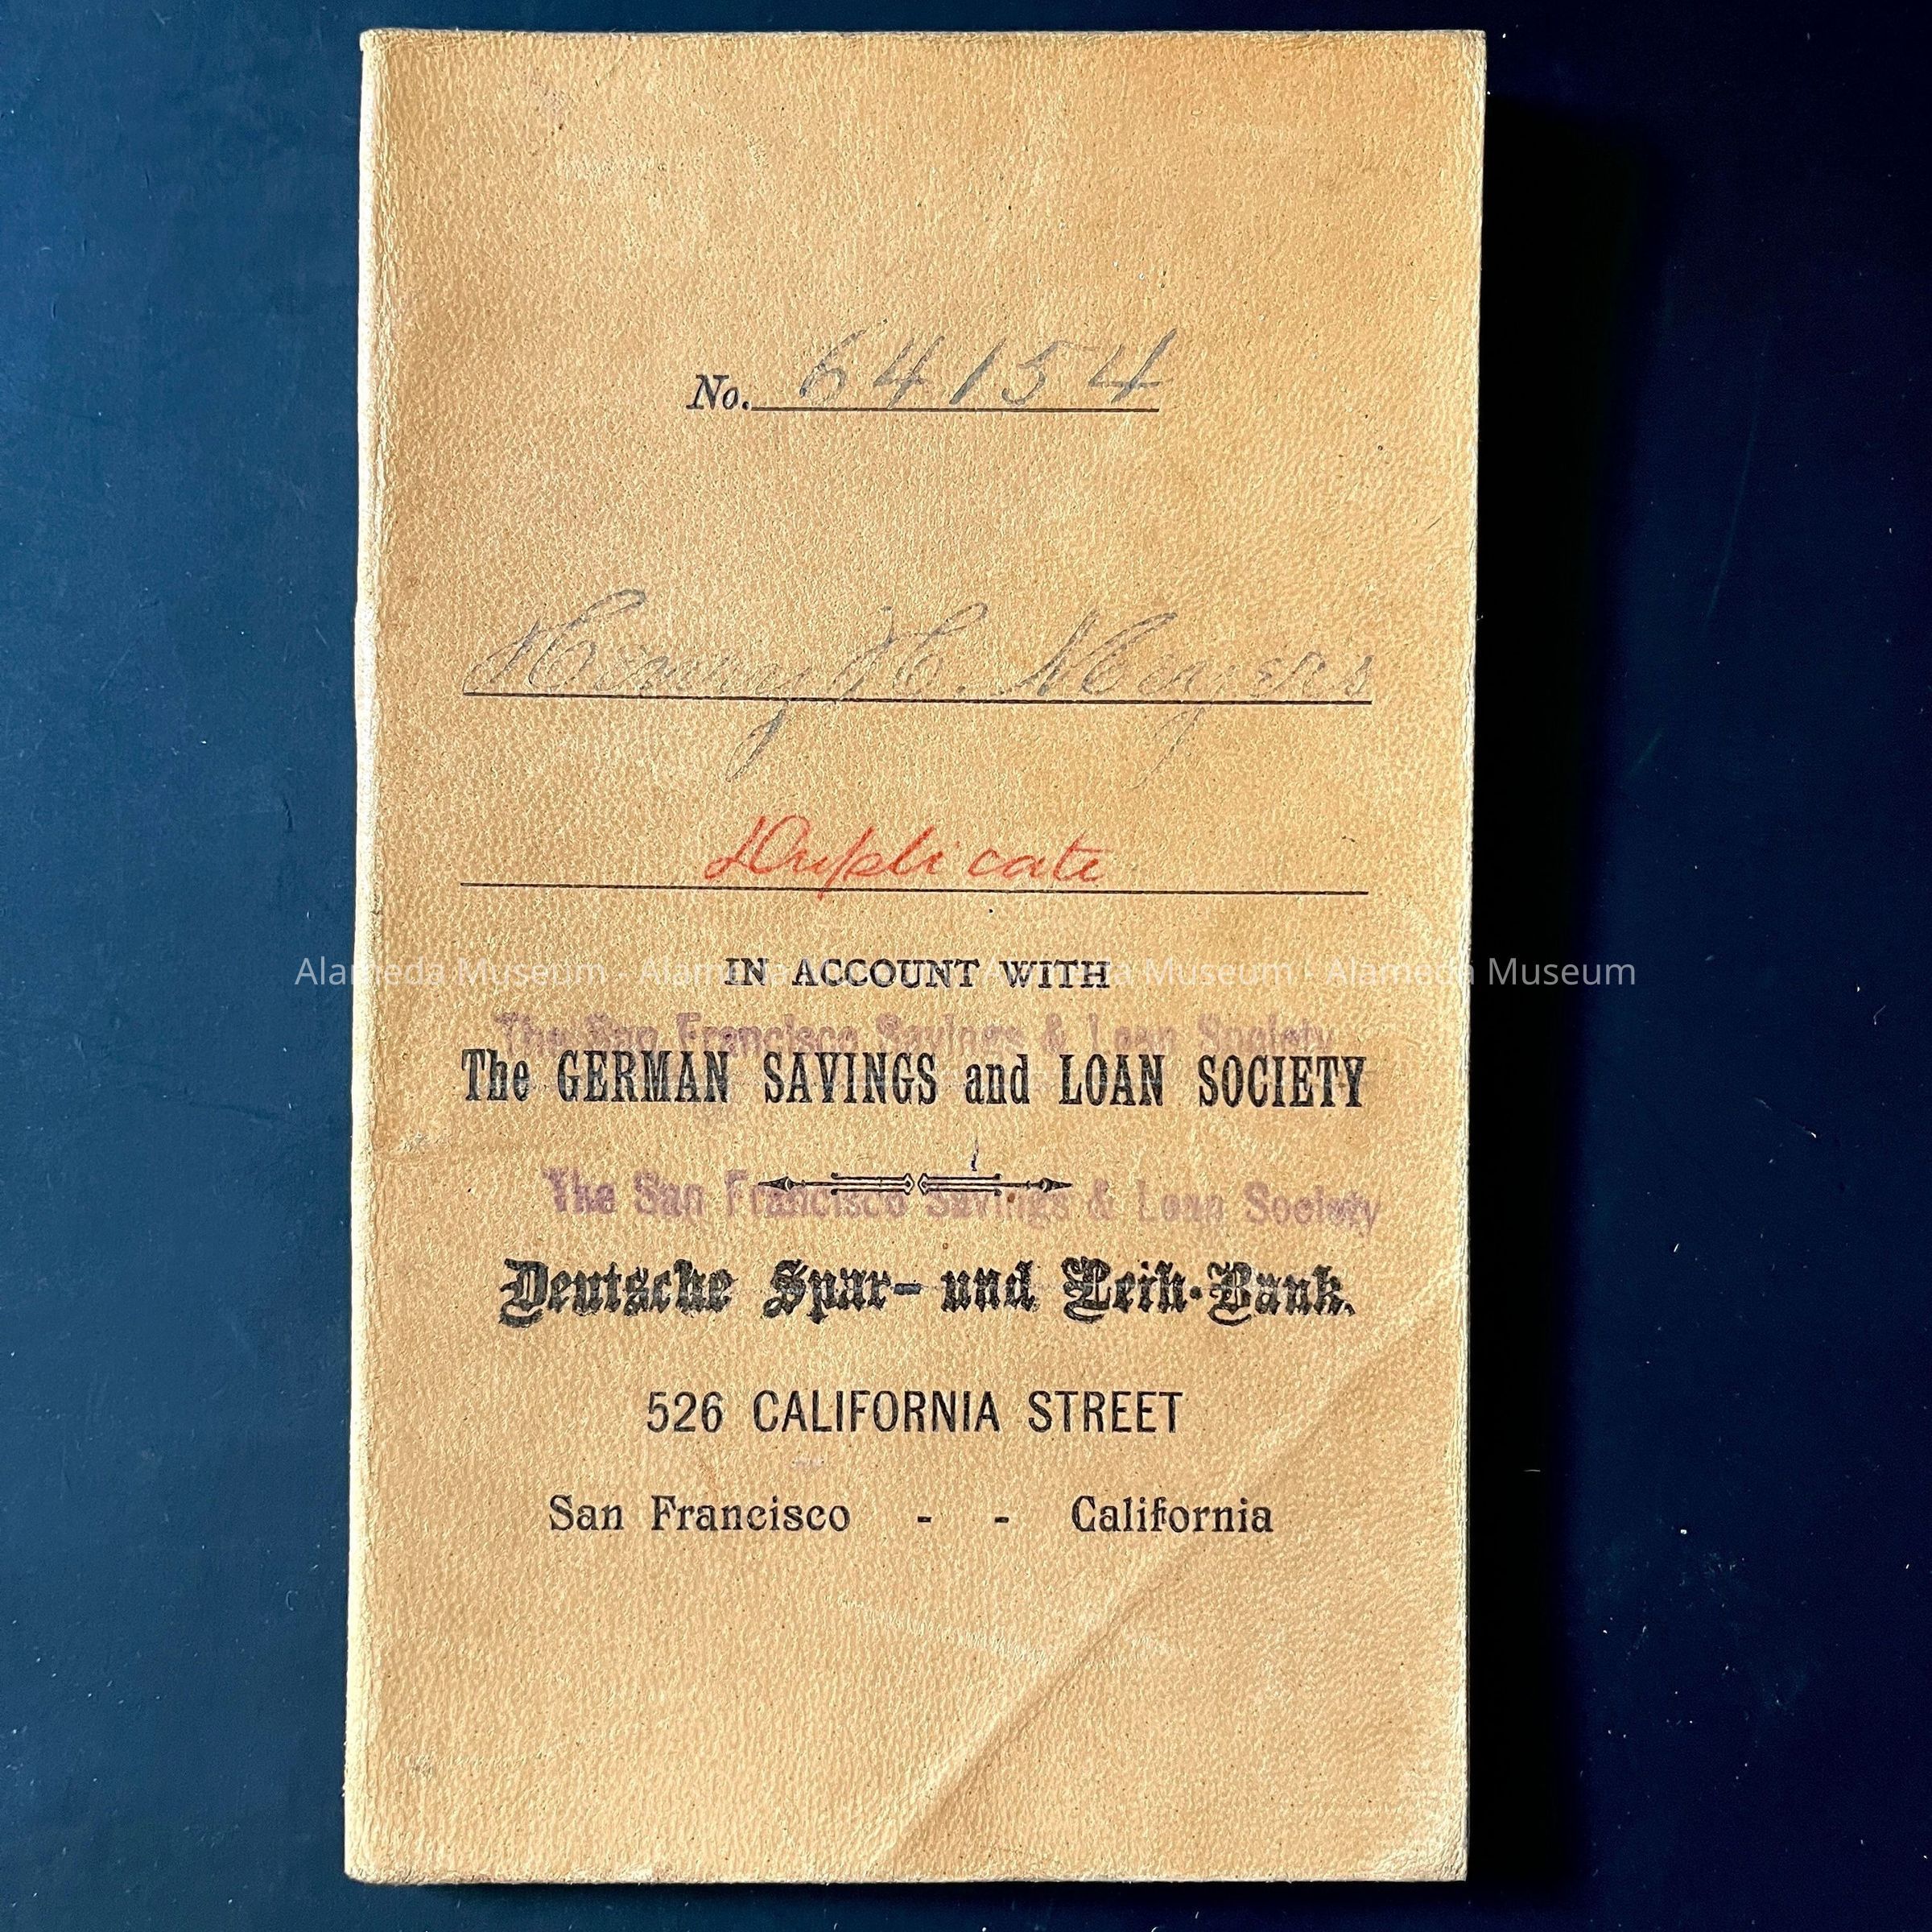 No. 64154
Henry H. Meyers
Duplicate
IN ACCOUNT WITH
Alameda Museum - Alameda Museum - Alameda Museum - Alameda Museum
The San Francisco Savings & Loan Society
The GERMAN SAVINGS and LOAN SOCIETY
The San Francisco Savings & Loan Society
Deutsche Spar- und Leih-Bank.
526 CALIFORNIA STREET
San Francisco - - California